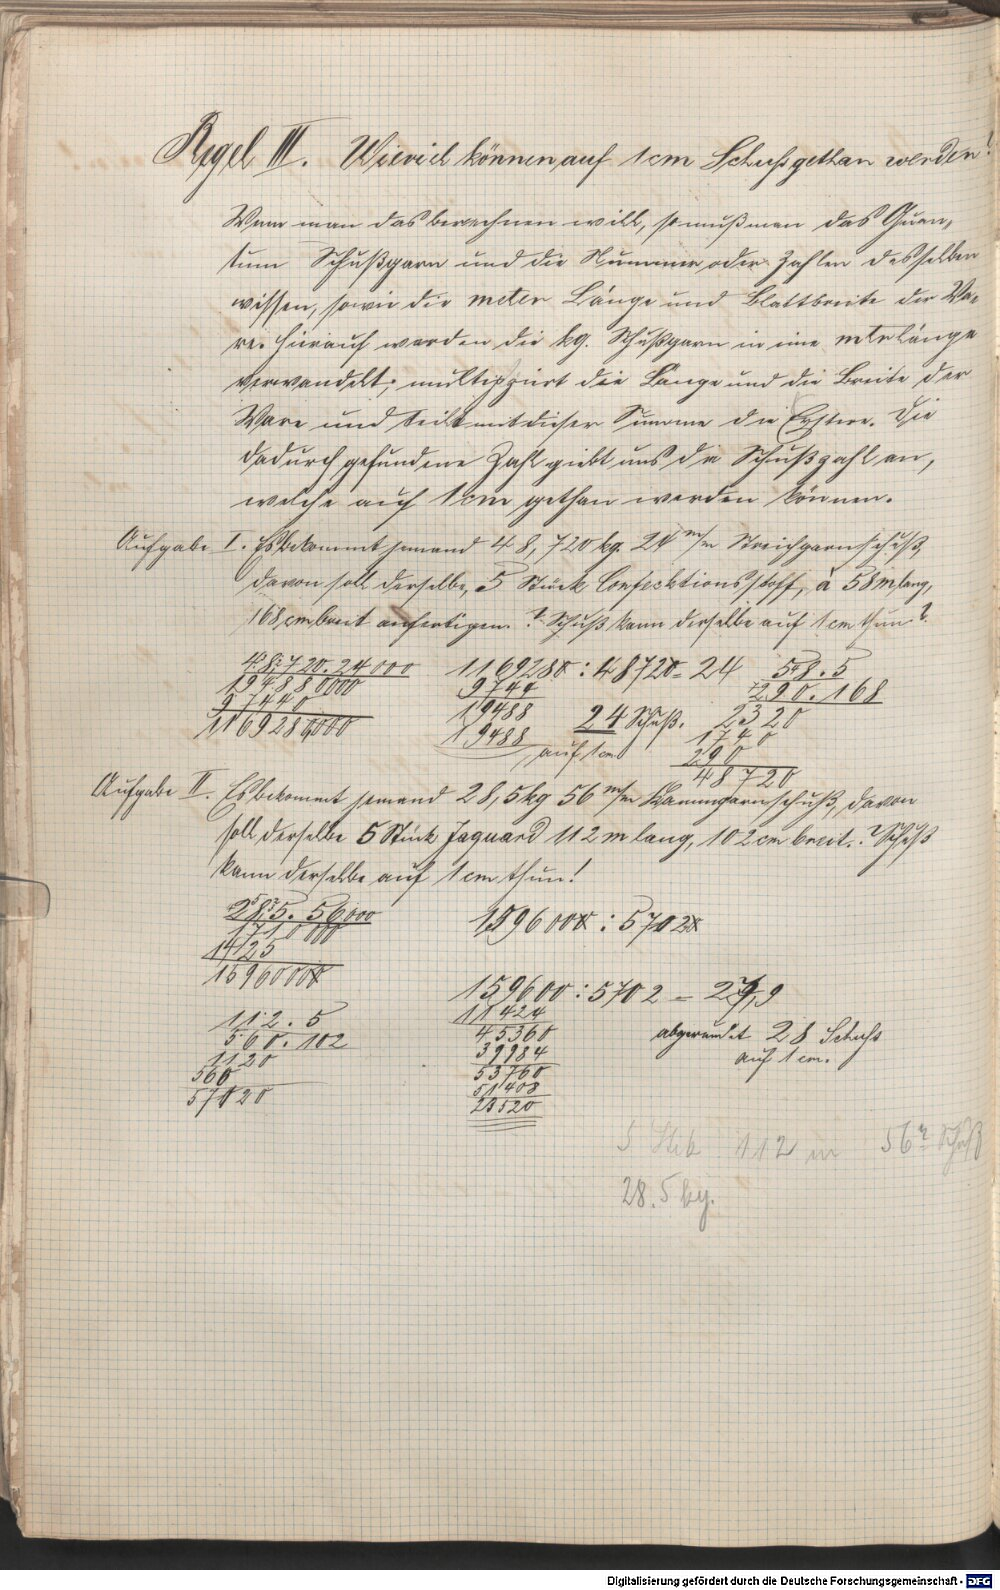 Regel III. Wieviel können auf 1 cm Schuss gethan werden?
Wenn man das berechnen will, so muß man das Quan-
tum Schußgarn und die Nummer oder Zahlen desselben
wissen, sowie die meter Länge und Blattbreite der Wa-
re. Hierauf werden die kg. Schußgarn in eine mtrlänge
verwandelt; multipziert die Länge und die Breite der
Ware und teilt mit dieser Summe die Erstere. Die
dadurch gefundene Zahl giebt uns die Schußzahl an,
welche auf 1 cm gethan werden können.
Aufgabe I. Es bekommt jemand 48,720 kg. 24 m/m Streichgarnschuß,
davon soll derselbe, 5 Stück Confecktionsstoff, à 58 m lang,
168 cm breit anfertigen. ? Schuß kann derselbe auf 1 cm thun?
48,720.24000 1169280 : 48720 = 24 58.5
194880000 9744 290.168
97440 19488 24 Schuß. 2320
1169280000 19488 auf 1 cm 1740
290
48720
Aufgabe II. Es bekommt jemand 28,5 kg 56 m/m Kammgarnschuß, davon
soll derselbe 5 Stück Jaquard 112 m lang, 102 cm breit. ? Schuß
kann derselbe auf 1 cm thun!
28,5.56000 1596000 : 57020
1710000
1425
1596000
159600 : 5702 = 27,9
11424
112.5 45360 abgerundet 28 Schuss
560.102 39984 auf 1 cm.
1120 53760
560 51408
57120 23520
5 Stck 112 m 56r Schuß
28.5 kg.
Digitalisierung gefördert durch die Deutsche Forschungsgemeinschaft - DFG